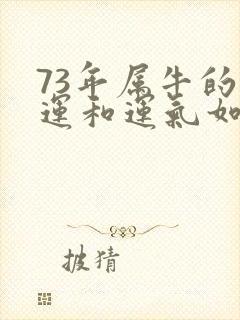 73年属牛的
运和运氣如
披猜